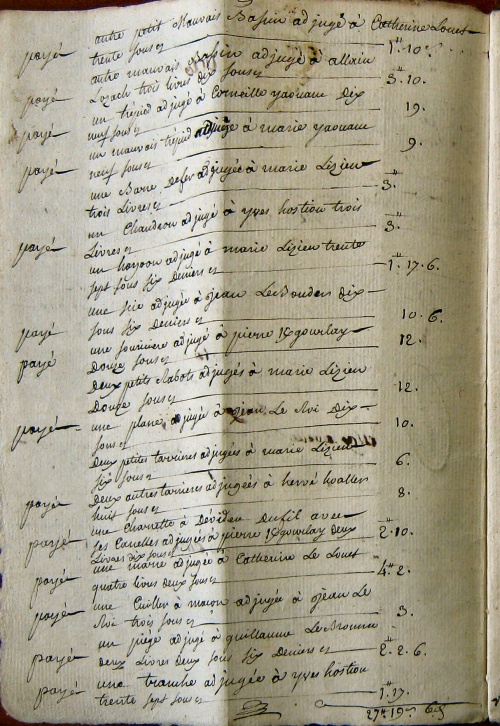 autre petit Mauvais Bassin adjugé à Catherine Louet
payé trente sous 1# 10.
autre mauvais Bassin adjugé à allain
payé Lozach trois livres dix sous 3. 10.
un trépied adjugé à Corneille yaouanc dix
payé neuf sous 19.
un mauvais trépied adjugé à marie yaouanc
payé neuf sous 9.
une Barre de fer adjugée à marie Lizien
trois Livres 3.#
un Chaudron adjugé à yves hostiou trois
payé Livres 3.#
un adjugé à marie Lizien trente
sept sous six Deniers 1.# 17. 6.
une Scie adjugée à jean Le Bouder dix
payé sous six Deniers 10. 6.
une adjugée à pierre Kgourlay
payé Douze sous 12.
Deux petits Rabots adjugés à marie Lizien
Douze sous 12.
payé une plane adjugée à jean Le Roi Dix
sous 10.
Deux petites tarrieres adjugées à marie Lizien
six sous 6.
Deux autres tarrieres adjugées à hervé
payé huit sous 8.
une Charette à Dévider Du fil avec
payé ses Canelles adjugés à pierre Kgourlay deux
Livres dix sous 2.# 10.
une marre adjugée à Catherine Le Louet
payé quatre livres deux sous 4.# 2.
une Cuiller à maçon adjugée à jean Le
payé Roi trois sous 3.
un piège adjugé à guillaume Le
payé deux Livres Deux sous six Deniers 2.# 2. 6.
une tranche adjugée à yves hostiou
payé trente sept sous 1.# 17.
27# 19s 6d